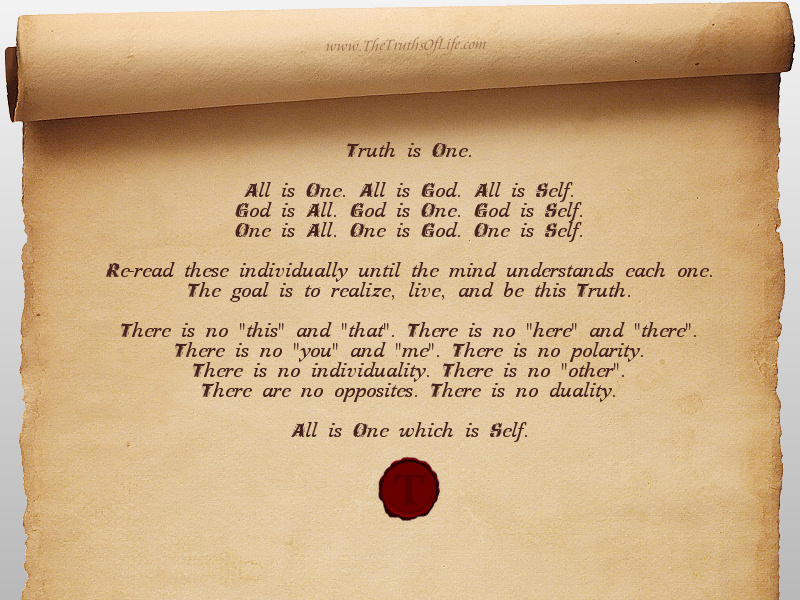 www.TheTruthsOfLife.com
Truth is One.
All is One. All is God. All is Self.
God is All. God is One. God is Self.
One is All. One is God. One is Self.
Re-read these individually until the mind understands each one.
The goal is to realize, live, and be this Truth.
There is no "this" and "that". There is no "here" and "there".
There is no "you" and "me". There is no polarity.
There is no individuality. There is no "other".
There are no opposites. There is no duality.
All is One which is Self.
T